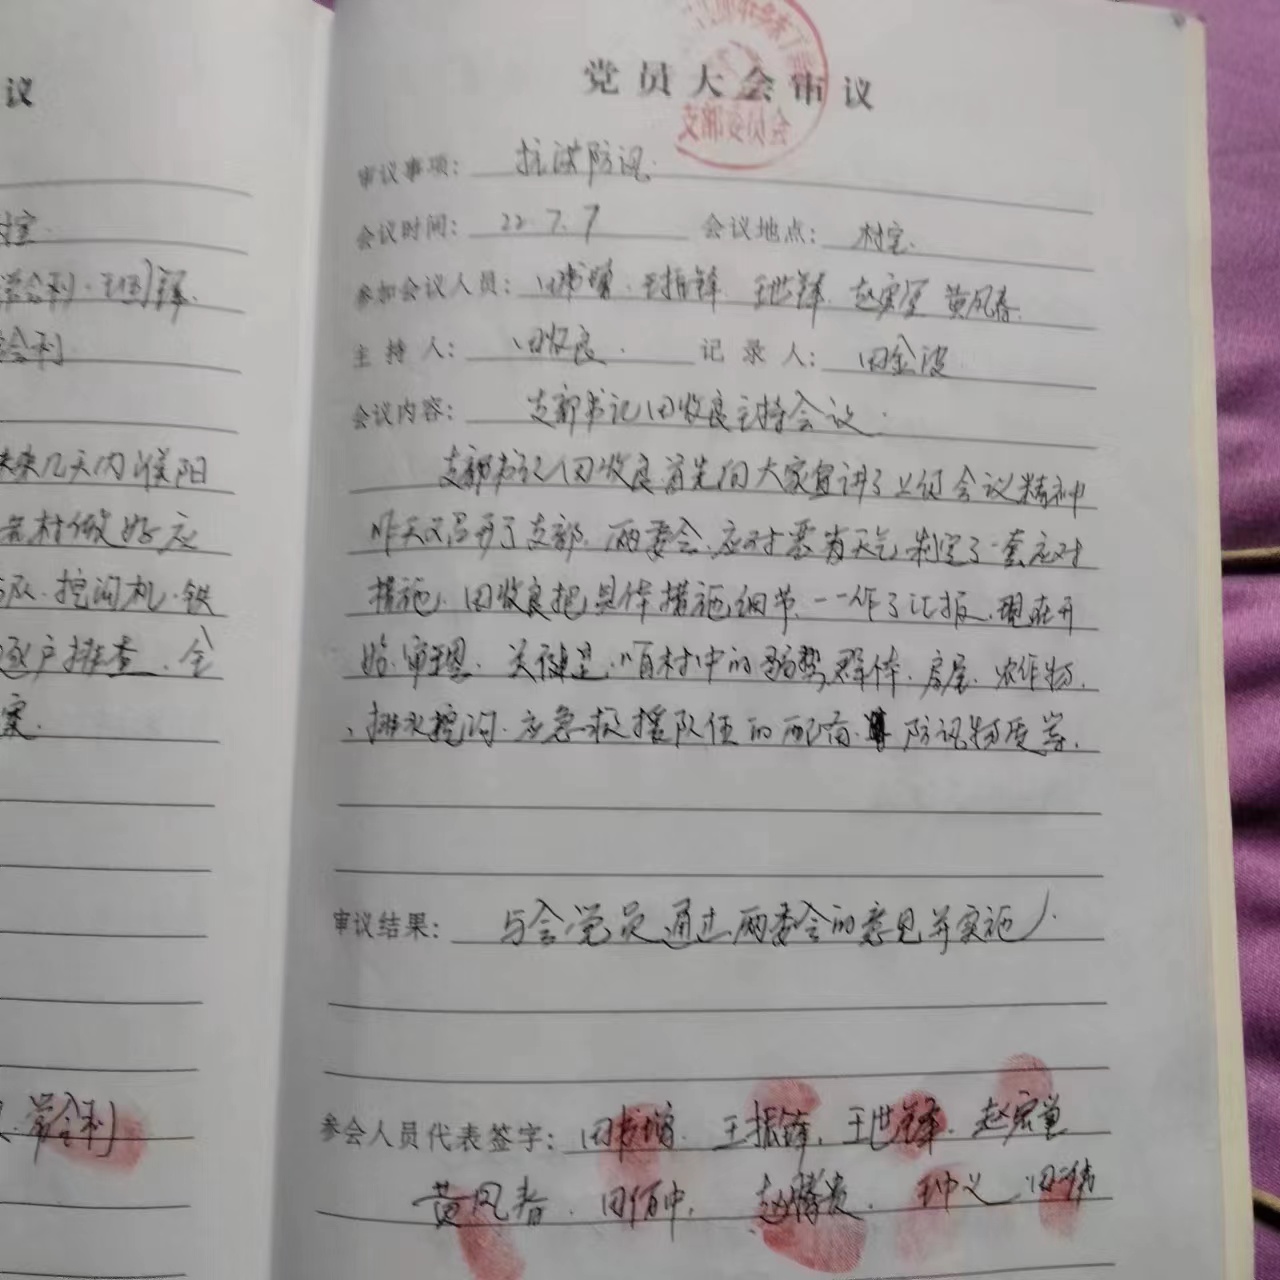 议
未来几天内濮阳
各村做好应
队.挖沟机.铁
逐户排查.全
案.
常会利
党员大会审议
审议事项: 抗洪防汛.
会议时间: 22.7.7 会议地点: 村室.
参加会议人员: 田书增.王振锋 王世锋.赵宏堂 黄凤春.
主持人: 田收良. 记录人: 田金波
会议内容: 支部书记田收良主持会议.
支部书记田收良首先向大家宣讲了上级会议精神
昨天又召开了支部.两委会.应对恶劣天气.制定了一套应对
措施.田收良把具体措施细节.一一作了汇报.现在开
始.审理.关键是.咱村中的弱势群体.房屋.农作物.
、排水挖沟.应急救援队伍的配备.防讯物质等.
审议结果: 与会党员通过两委会的意见并实施.
参会人员代表签字: 田书增.王振锋.王世锋.赵宏堂
黄凤春.田佰中.赵腾贵.王中义.田